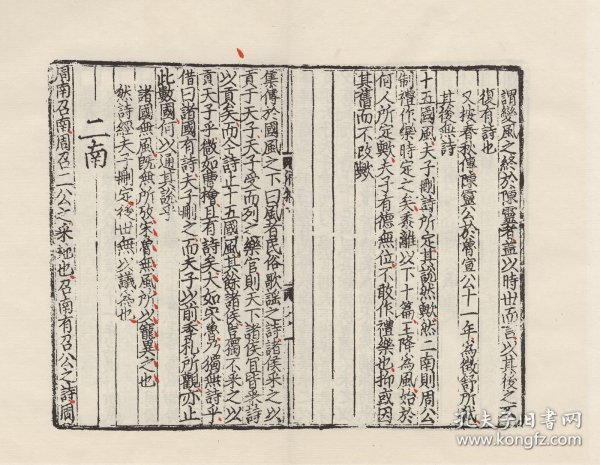 謂變風之終於陳靈者蓋以時世而言以其後之不
復有詩也
又按春秋傳陳靈公於魯宣公十一年為徵舒所弒
其後無詩
十五國風夫子刪詩所定其說然歟然二南則周公
制禮作樂時定之矣黍離以下十篇王降為風始於
何人所定歟夫子有德無位不敢作禮樂也抑或因
其舊而不改歟
集傳於國風之下曰風者民俗歌謠之詩諸侯采之以
貢于天子天子受而列之樂官則天下諸侯宜皆采詩
以貢矣而今詩止十五國風其餘諸侯皆獨不采之以
貢天子乎微如曹檜且有詩矣大如宋魯乃獨無詩乎
借曰諸國有詩夫子刪之而夫子以前季札所觀亦止
此數國何以通其說乎
諸國無風既無所考宋魯無風所以寵異之也
然詩經夫子刪定後世無以議為也
二南
周南召南周召二公之采地也召南有召公之詩周
孔夫子旧书网
www.kongfz.com